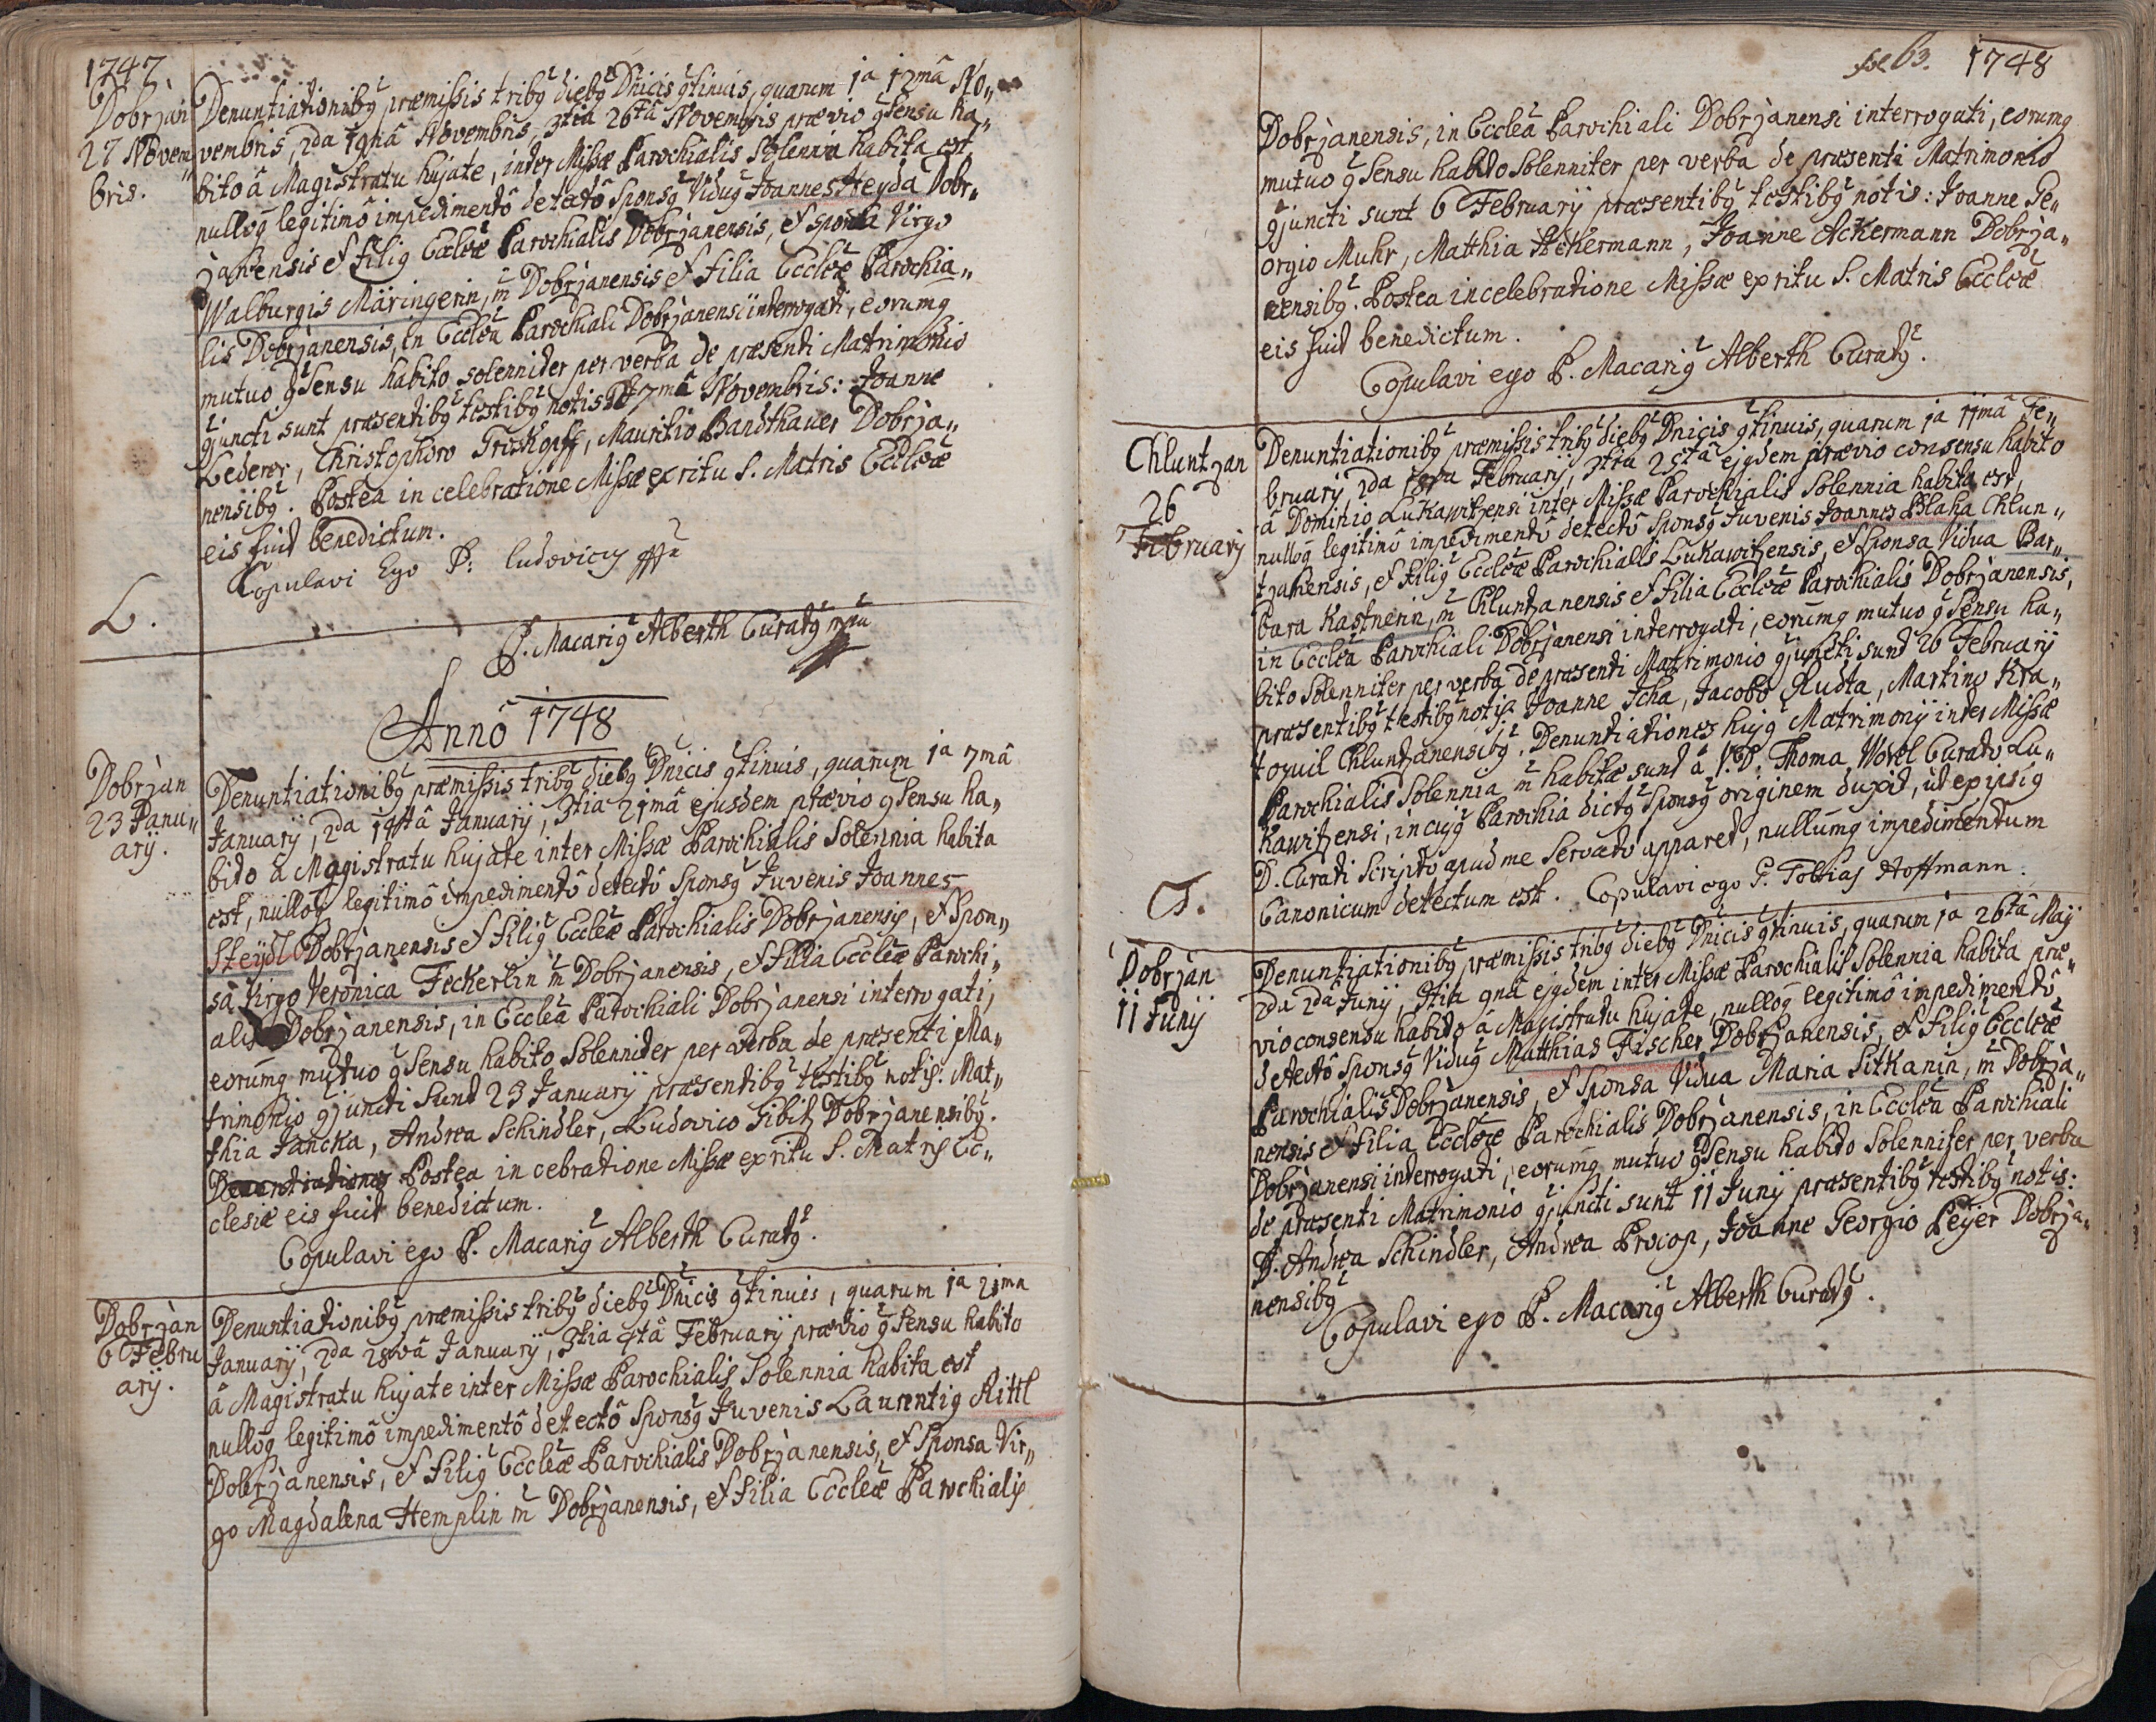 1747
Dobrjan
27 Novem„
bris.
Denuntiationibq præmissis tribq diebq Dnicis qtinuis, quarum 1a 12mâ No„
vembris, 2da 19nâ Novembris, 3tia 26tâ Novembris prævio qsensu ha„
bito â Magistratu hujate, inter Missæ Parochialis Solennia habita est,
nullôq legitimô impedimentô detectô Sponsq Viduq Joannes Heyda Dobr„
janensis et Filiq Eccleæ Parochialis Dobrjanensis, et sponsa Virgo
Walburgis Märingerin, m Dobrjanensis et Filia Eccleæ Parochia„
lis Dobrjanensis, in Ecclea Parochiali Dobrjanensi interrogati, eorumq
mutuo qsensu habito solenniter per verba de præsenti Matrimonio
qjuncti sunt præsentibq testibq notis 27mâ Novembris: Joanne
Lederer, Christophoro Trishopff, Mauritio Bandthauer Dobrja„
nensibq. Postea in celebratione Missæ ex ritu S. Matris Eccleæ
eis fuit benedictum.
Copulavi Ego P: Ludovicq
L.
P. Macariq Alberth Curatq mpu
Annô 1748
Dobrjan
23 Janu„
arij.
Denuntiationibq præmissis tribq diebq Dnicis qtinuis, quarum 1a 7mâ
Januarij, 2da 14tâ Januarij, 3tia 21mâ ejusdem prævio qsensu ha„
bito â Magistratu hujate inter Missæ Parochialis Solennia habita
est, nullôq legitimô impedimentô detectô Sponsq Juvenis Joannes
Steÿdl Dobrjanensis et Filiq Eccleæ Parochialis Dobrjanensis, et Spon„
sa Virgo Veronica Feckerlin m Dobrjanensis, et Filia Eccleæ Parochi„
alis Dobrjanensis, in Ecclea Parochiali Dobrjanensi interrogati,
eorumq mutuo qsensu habito Solenniter per verba de præsenti Ma„
trimonio qjuncti sunt 23 Januarij præsentibq testibq notis: Mat„
thia Jancka, Andrea Schindler, Ludovico Sibitz Dobrjanensibq.
Denuntiationes Postea in cebratione Missæ ex ritu S. Matris Ec„
clesiæ eis fuit benedictum.
Copulavi ego P. Macariq Alberth Curatq.
Dobrjan
6 Febru
arij.
Denuntiationibq præmissis tribq diebq Dnicis qtinuis, quarum 1a 21ma
Januarij, 2da 28vâ Januarij, 3tia 4tâ Februarij prævio qsensu habito
â Magistratu hujate inter Missæ Parochialis Solennia habita est
nullôq legitimô impedimentô detectô Sponsq Juvenis Laurentiq Rittl
Dobrjanensis, et Filiq Eccleæ Parochialis Dobrjanensis, et Sponsa Vir„
go Magdalena Hemplin m Dobrjanensis, et Filia Eccleæ Parochialis
63. 1748
Dobrjanensis, in Ecclea Parochiali Dobrjanensi interrogati, eorumq
mutuo qsensu habito Solenniter per verba de præsenti Matrimonio
qjuncti sunt 6 Februarij præsentibq testibq notis: Joanne Ge„
orgio Muhr, Matthia Ackermann, Joanne Ackermann Dobrja„
nensibq. Postea in celebratione Missæ ex ritu S. Matris Eccleæ
eis fuit benedictum.
Copulavi ego P. Macariq Alberth Curatq.
Chluntzan
26
Februarij
Denuntiationibq præmissis tribq diebq Dnicis qtinuis, quarum 1a 11mâ Fe„
bruarij, 2da 18va Februarij, 3tia 25tâ ejqdem prævio consensu habito
â Dominio Lukawitzensi inter Missæ Parochialis Solennia habita est,
nullôq legitimô impedimentô detectô Sponsq Juvenis Joannes Blaha Chlun„
tzanensis, et Filiq Eccleæ Parochialis Lukawitzensis, et Sponsa Vidua Bar„
bara Kastnerin, m Chluntzanensis et Filia Eccleæ Parochialis Dobrjanensis,
in Ecclea Parochiali Dobrjanensi interrogati, eorumq mutuo qsensu ha„
bito Solenniter per verba de præsenti Matrimonio qjuncti sunt 26 Februarij
præsentibq testibq notis Joanne Icha, Jacobo Rudta, Martino Kra„
toquil Chluntzanensibq. Denuntiationes hujq Matrimonij inter Missæ
Parochialis Solennia m habitæ sunt â V. D. Thoma Wodel Curato Lu„
kawitzensi, in cujq Parochia dictq Sponsq originem duxit, ut ex ipsiq
D. Curati Scripto apud me servato apparet, nullumq impedimentum
Canonicum detectum est. Copulavi ego P. Tobias Hoffmann.
T.
Dobrjan
11 Junij
Denuntiationibq præmissis tribq diebq Dnicis qtinuis, quarum 1a 26tâ Maij
2da 2da Junij, 3tia 9nâ ejqdem inter Missæ Parochialis Solennia habita præ„
vio consensu habito â Magistratu hujate, nullôq legitimô impedimentô
detectô Sponsq Viduq Matthias Fischer Dobrjanensis, et Filiq Eccleæ
Parochialis Dobrjanensis, et Sponsa Vidua Maria Sitkanin, m Dobrja„
nensis et Filia Eccleæ Parochialis Dobrjanensis, in Ecclea Parochiali
Dobrjanensi interrogati, eorumq mutuo qsensu habito Solenniter per verba
de præsenti Matrimonio qjuncti sunt 11 Junij præsentibq testibq notis:
D. Andrea Schindler, Andrea Procop, Joanne Georgio Peÿer Dobrja„
nensibq
Copulavi ego P. Macariq Alberth Curatq.